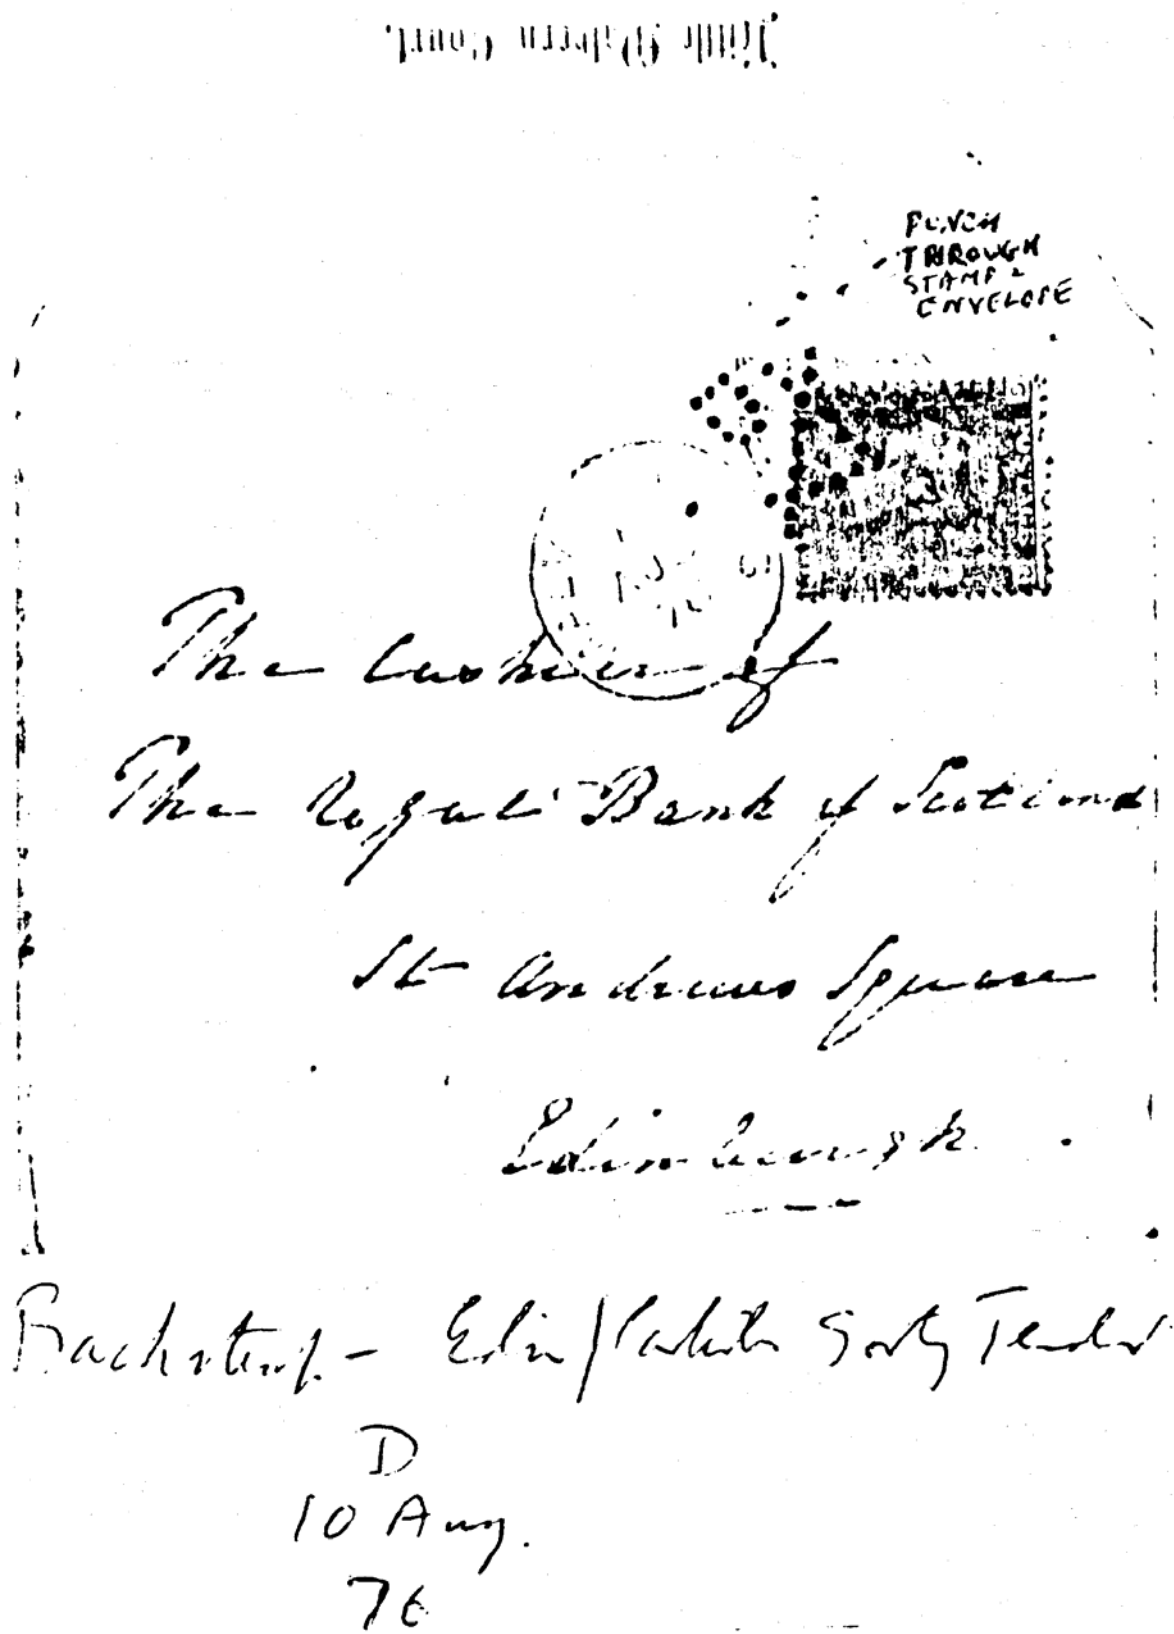 Little Malvern Court.
PUNCH
THROUGH
STAMP &
ENVELOPE
The Cashier of
The Royal Bank of Scotland
St Andrews Square
Edinburgh.
Backstamp - Edin/Carlisle Sortg Tender
D
10 Aug.
76